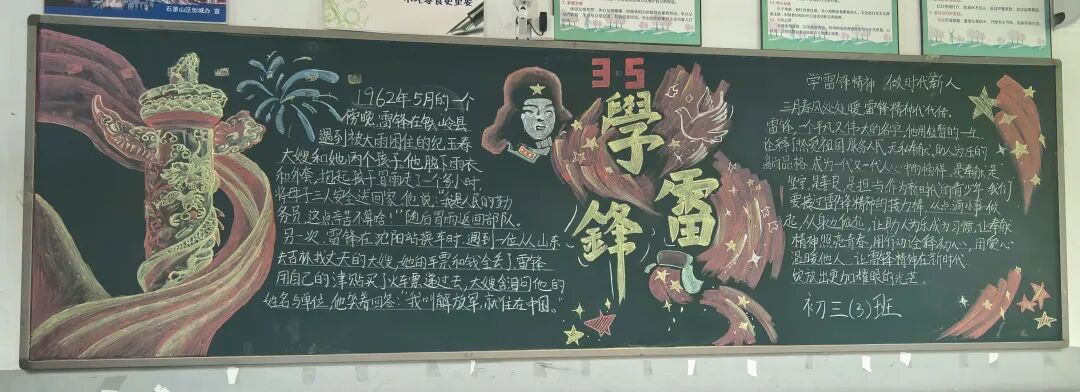 石景山区创城办 宣
1962年5月的一个
傍晚,雷锋在铁岭县
遇到被大雨困住的纪玉春
大嫂和她两个孩子,他脱下雨衣
和外套,抱起孩子冒雨走了一个多小时,
将母子三人安全送回家,他说:“我是人民的勤
务员,这点辛苦不算啥!”随后冒雨返回部队。
另一次,雷锋在沈阳站换车时,遇到一位从山东
去吉林找丈夫的大嫂,她的车票和钱全丢了,雷锋
用自己的津贴买了火车票递过去,大嫂含泪问他的
姓名与单位,他笑着回答:“我叫解放军,就住在中国。”
3 5
學
雷
鋒
学雷锋精神 做时代新人
三月春风处处暖,雷锋精神代代传。
雷锋,一个平凡又伟大的名字,他用短暂的一生,
诠释了热爱祖国、服务人民、无私奉献、助人为乐的
高尚品格,成为一代又一代人心中的榜样,是奉献,是
坚守,是善良,是担当,作为新时代的青少年,我们
要接过雷锋精神的接力棒,从点滴小事做
起,从身边做起,让助人为乐成为习惯,让奉献
精神照亮青春,用行动诠释初心,用爱心
温暖他人,让雷锋精神在新时代
绽放出更加耀眼的光芒。
初三(3)班